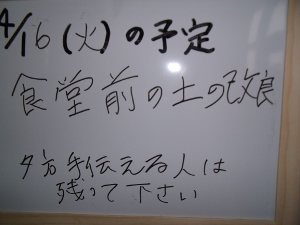 4/16(火)の予定
食堂前の土の改良
夕方手伝える人は
残って下さい